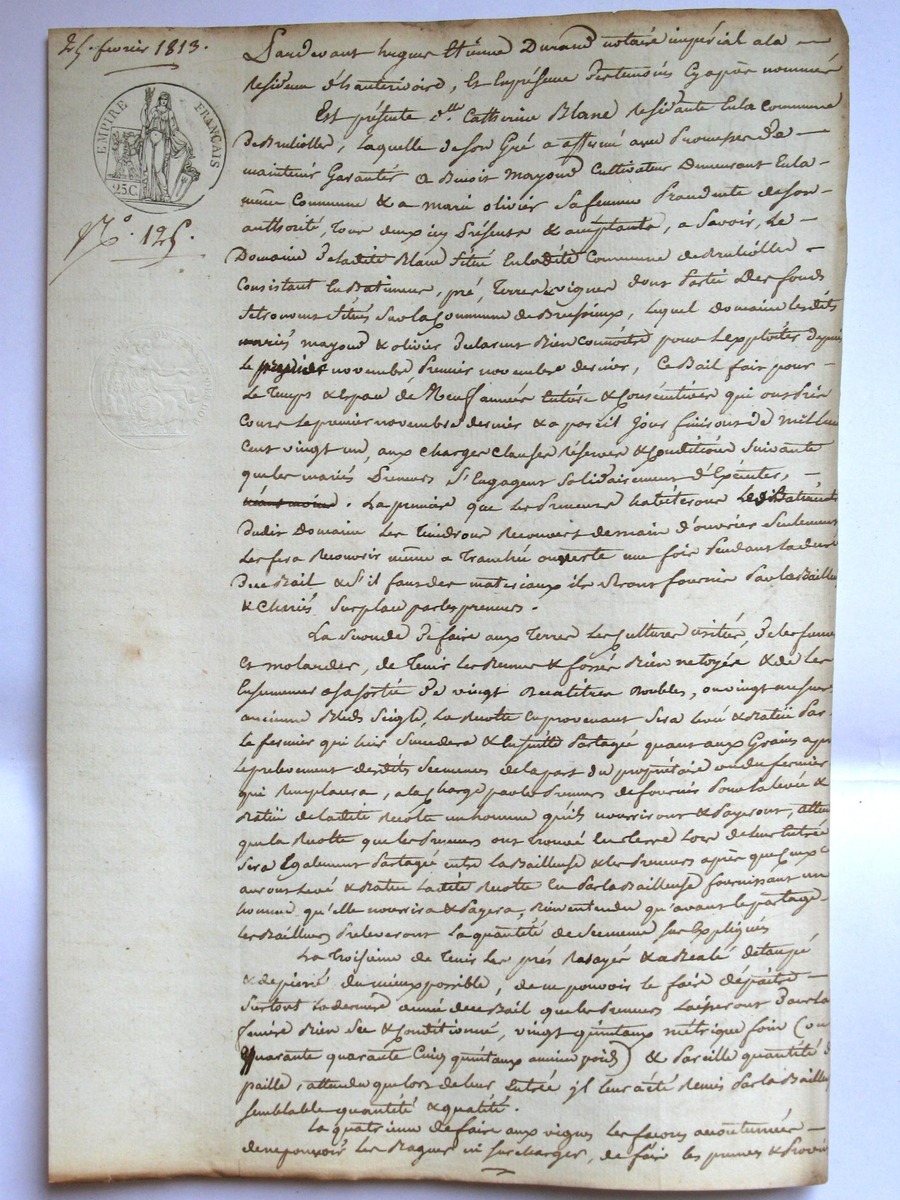 25. fevrier 1813.
EMPIRE FRANÇAIS
25 C.
N.° 125.
Pardevant hugues Etienne Durand notaire impérial a la
Residence d'hauterivoire, et En présence des temoins Cy après nommés
Est présente d.lle Catherine Blanc Residante En la Commune
De Brulliolles, laquelle de son Gré a affermé avec Promesse de
maintenir Garantir a Benoit mayoud Cultivateur Demeurant En la
même Commune & a marie olivier sa femme Procedente de son
authorité, Tous deux icy Présents & acceptants, a Savoir, Le
Domaine de ladite Blanc situé En ladite Commune de Brulliolle
Consistant En Batiments, pré, Terres & vignes dont Partie des fonds
se trouvent situés sur la Commune de Brussieux, lequel Domaine lesdits
mariés mayoud & olivier declarent Bien connoitre pour L'exploiter depuis
Le novembre Premier novembre dernier, Ce Bail fait pour
Le Temps & Espace de Neuf années Entieres & Consécutives qui ont Pris
Cours le premier novembre dernier & a pareil Jour finiront de mil huit
Cent vingt un, aux charges Clauses réserves & Conditions Suivantes
que les mariés Preneurs S'Engagent Solidairement d'Exécuter,
La premiere que les Preneurs habiterons Les Batiments
Dudit Domaine Les Tiendrons Recouverts de main d'ouvrier Seulement
Les fera Recouvrir même a Tranchée ouverte une fois Pendant la durée
Du Bail & S'il faut des materiaux ils Seront fournis Par la Bailleuse
& Chariés Sur place par les preneurs.
La Seconde de faire aux Terres Les Cultures usitées, de les fumer
Et molander, de Tenir Les & fossés Bien netoyés & de Les
Ensemencer a sa sortie de vingt Decalitres Doubles, ou vingt mesures
ancienne Bleds Seigle, La Recolte En provenant Sera levée & Batüe Par
Le fermier qui luis Succedera & Ensuitte Partagée quant aux Grains après
le prelevement desdits Semences de la part du propriétaire ou du fermier
qui Remplacera, a la Charge par les Preneurs de fournir Pour la levée &
Batüe de ladite Recolte un homme qu'ils nourriront & Payeront, attendu
que la Recolte que les Preneurs ont trouvé En Terre Lors de leur Entrée
Sera Egalement Partagée entre La Bailleuse & les Preneurs après que Ceux cy
auront Levé & Battu Ladite Recolte En Par la Bailleuse fournissant un
homme qu'elle nourrira & Payera, Bien entendu qu'avant le partage
les Bailleurs Preleveront La quantité de Semence Sus Expliqués
La Troisieme de Tenir Les prés Rasayés & a Bealé detaupé
& depierré du mieux possible, de ne pouvoir le faire dépaitre
Surtout La derniere année du Bail que les Preneurs Laisseront Dans la
feniere Bien Sec & Conditionné, vingt quintaux métrique foin (ou
Quarante quarante Cinq quintaux ancien poids) & Pareille quantité de
paille, attendu que lors de leur Entrée il leur a été Remis Par la Bailleuse
semblable quantité & qualité.
La quatrieme de faire aux vignes Les façons accoutumées
de ne pouvoir les Raguer ni surcharger, de faire les &